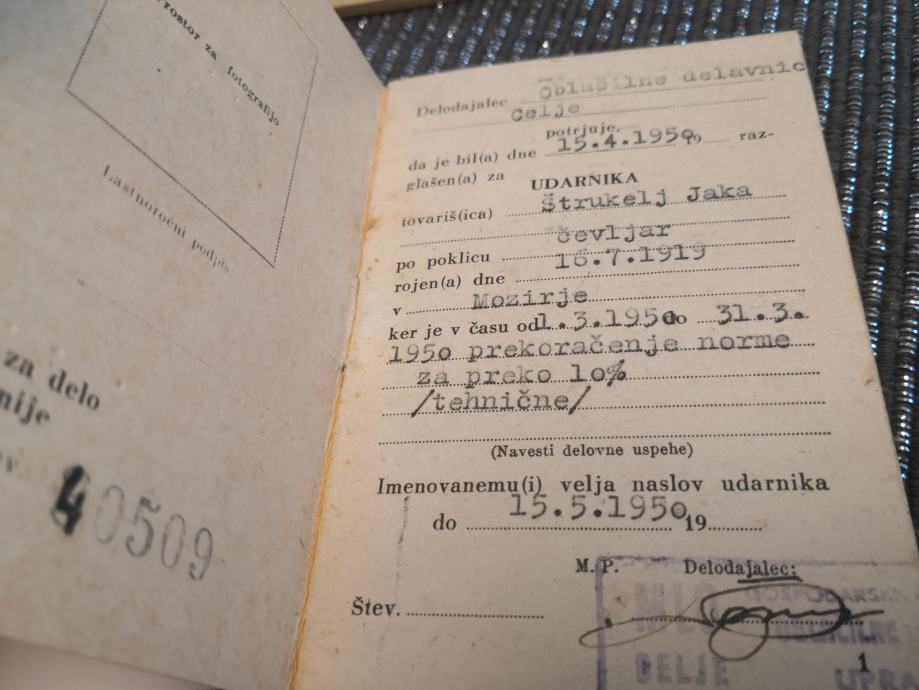 Prostor za fotografijo
Lastnoročni podpis:
za delo
nije
40509
Delodajalec Oblačilne delavnic
Celje
potrjuje,
da je bil(a) dne 15.4.1950 19 raz-
glašen(a) za
UDARNIKA
tovariš(ica) Štrukelj Jaka
čevljar
po poklicu
rojen(a) dne 16.7.1919
v Mozirje
ker je v času od 1.3.1950 do 31.3.
1950 prekoračenje norme
za preko 10%
/tehnične/
(Navesti delovne uspehe)
Imenovanemu(i) velja naslov udarnika
do 15.5.1950 19
M. P. Delodajalec:
Štev.
GOSPODARSKA
CELJE
1